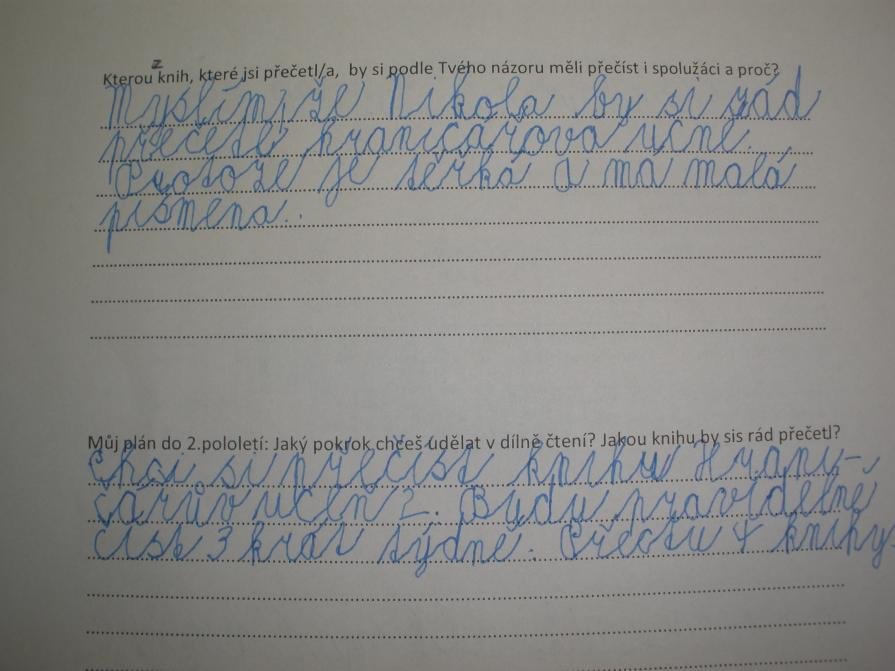 Kterou z knih, které jsi přečetl/a, by si podle Tvého názoru měli přečíst i spolužáci a proč?
Myslím že Nikola by si rád
přečetl hraničářova učně.
Protože je těrká a ma malá
písmena..
Můj plán do 2.pololetí: Jaký pokrok chceš udělat v dílně čtení? Jakou knihu by sis rád přečetl?
Chci si přečíst knihu Hrani-
čářův učeň 2. Budu pravidelně
číst 3 krát týdně. Přečtu 4 knihy.